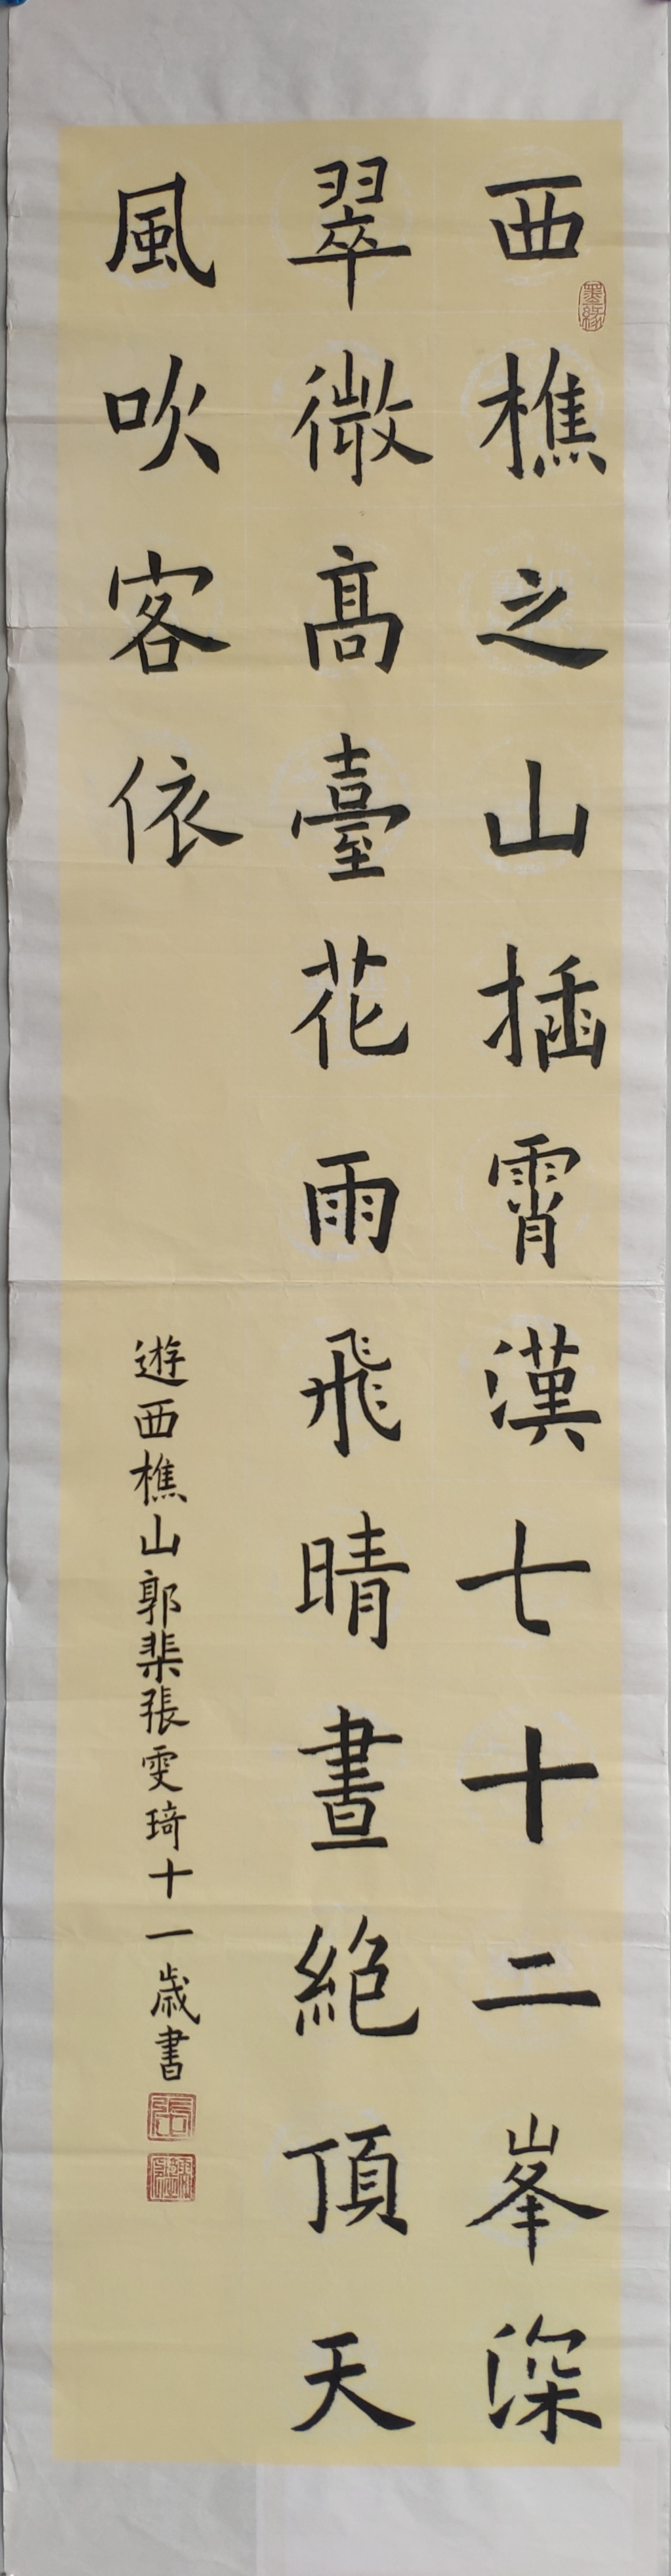 西樵之山插霄漢七十二峯深
翠微高臺花雨飛晴晝絕頂天
風吹客依
遊西樵山郭棐張雯琦十一歲書
墨緣